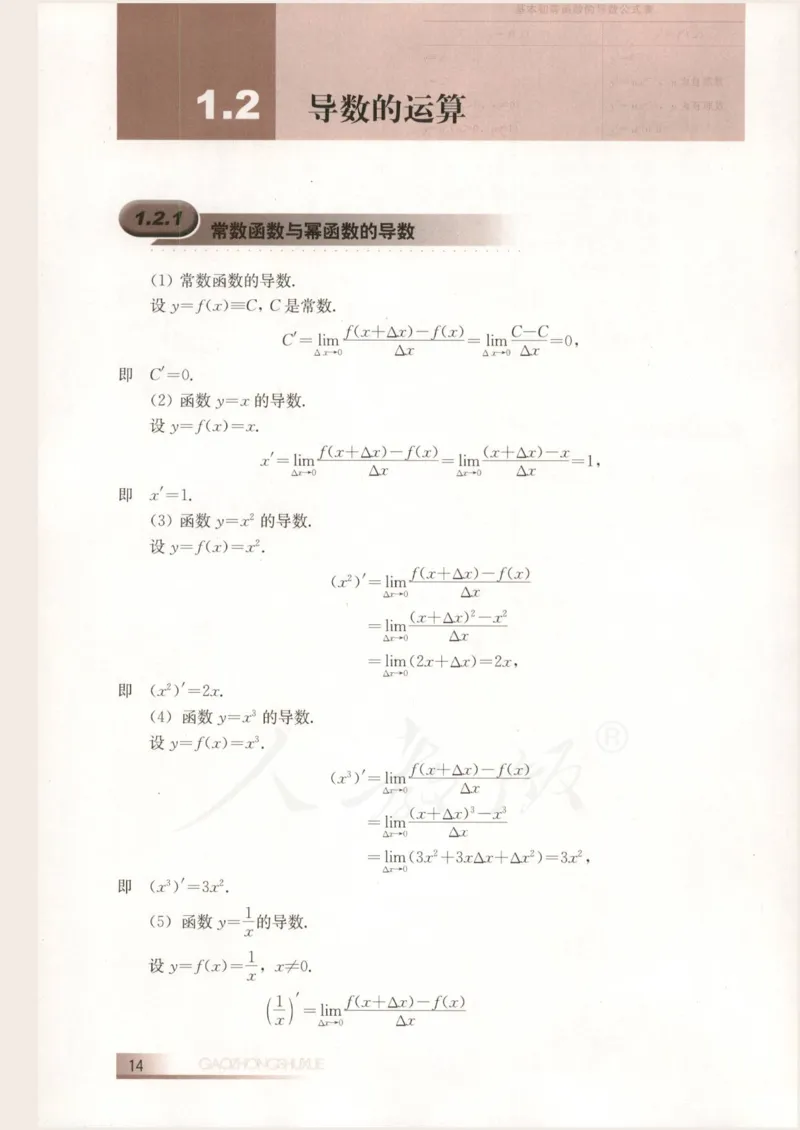 1.2 导数的运算
1.2.1 常数函数与幂函数的导数
(1) 常数函数的导数.
设 y=f(x)≡C, C是常数.
C′=lim_{Δx→0} \frac{f(x+Δx)-f(x)}{Δx}=lim_{Δx→0} \frac{C-C}{Δx}=0,
即 C′=0.
(2) 函数 y=x 的导数.
设 y=f(x)=x.
x′=lim_{Δx→0} \frac{f(x+Δx)-f(x)}{Δx}=lim_{Δx→0} \frac{(x+Δx)-x}{Δx}=1,
即 x′=1.
(3) 函数 y=x² 的导数.
设 y=f(x)=x².
(x²)′=lim_{Δx→0} \frac{f(x+Δx)-f(x)}{Δx}
=lim_{Δx→0} \frac{(x+Δx)²-x²}{Δx}
=lim_{Δx→0} (2x+Δx)=2x,
即 (x²)′=2x.
(4) 函数 y=x³ 的导数.
设 y=f(x)=x³.
(x³)′=lim_{Δx→0} \frac{f(x+Δx)-f(x)}{Δx}
=lim_{Δx→0} \frac{(x+Δx)³-x³}{Δx}
=lim_{Δx→0} (3x²+3xΔx+Δx²)=3x²,
即 (x³)′=3x².
(5) 函数 y=\frac{1}{x} 的导数.
设 y=f(x)=\frac{1}{x}, x≠0.
(\frac{1}{x})′=lim_{Δx→0} \frac{f(x+Δx)-f(x)}{Δx}
14 GAOZHONGSHUXUE
人教版®